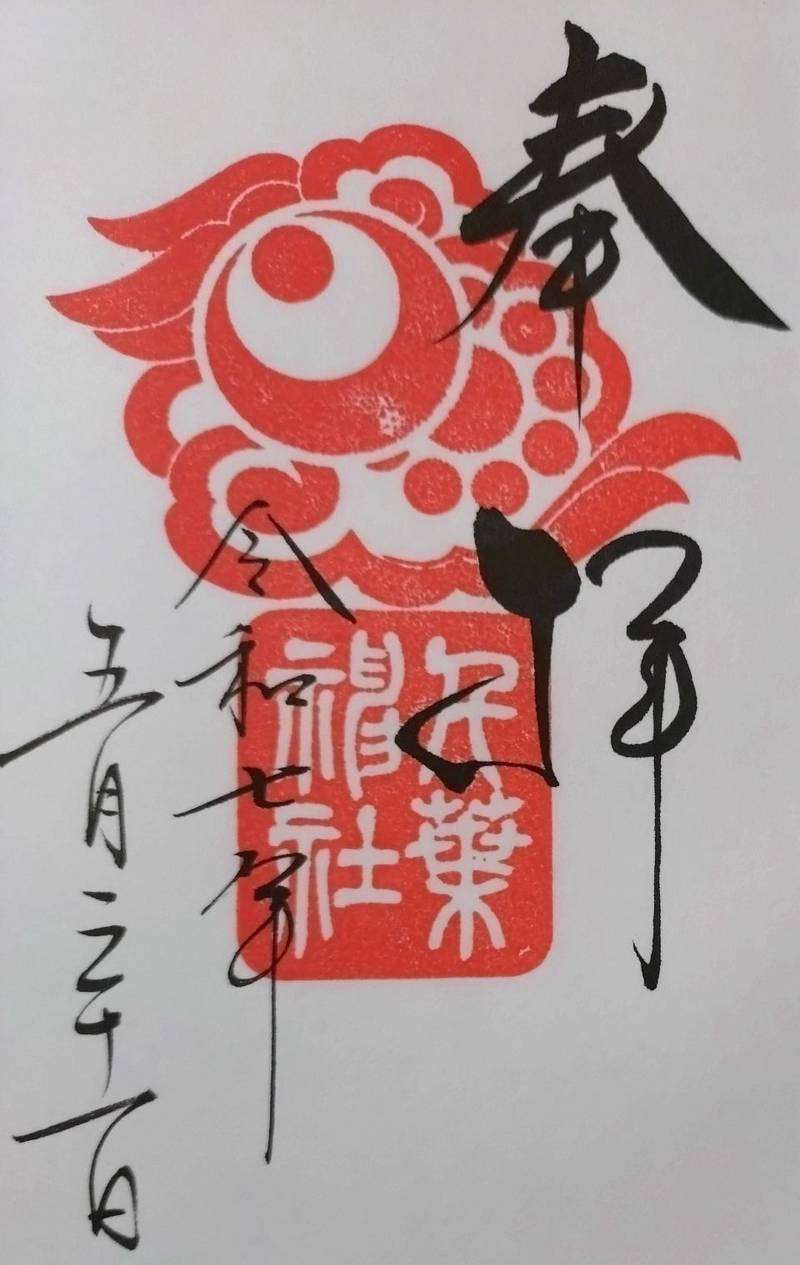 奉拝
千葉
神社
令和七年
五月三十一日